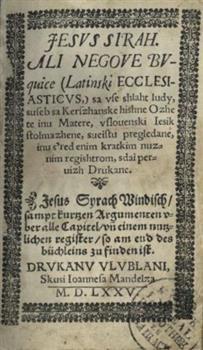 JESVS SIRAH.
ALI NEGOVE BV-
quice (Latinski ECCLESI-
ASTICVS,) sa vse shlaht ludy,
suseb sa Kerszhanske hishne Ozhe
te inu Matere, vslovenski Iesik
stolmazhene, sveistu pregledane,
inu s'red enim kratkim nuz-
nim registrom, sdai per-
uizh Drukanc.
Jesus Syrach Windisch/
sampt kurtzen Argumenten v-
ber alle Capitel/vñ einem nutz-
lichen register/so am end des
büchleins zu finden ist.
DRVKANV VLVBLANI,
Skusi Ioannesa Mandelza.
M. D. LXXV.